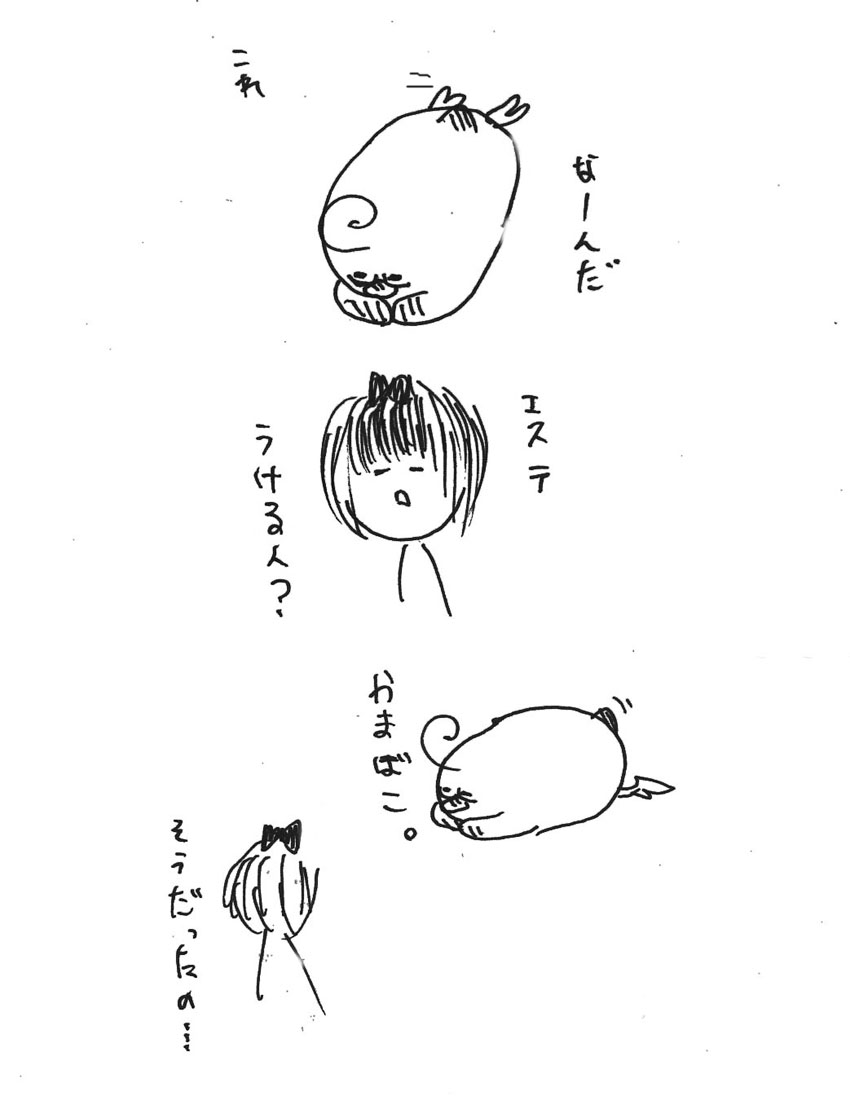 これ
なーんだ
エステ
うける人?
かまばこ。
そうだったの…